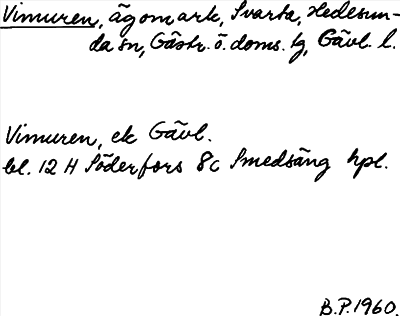 Vimuren, ägomark, Svarta, Hedesun-
da sn, Gästr. ö. doms. tg, Gävl. l.
Vimuren, ek Gävl.
bl. 12 H Söderfors 8c Smedsäng hpl.
B.P. 1960.